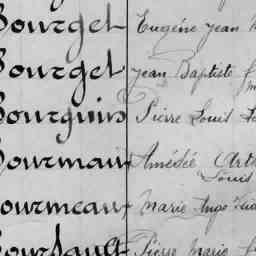 Bourget Eugène Jean
Bourget Jean Baptiste
Bourguin Pierre Louis
Bourmaux Amédée Arth
Louis
Bourmeaux Marie Ange
Boursault Pierre Marie